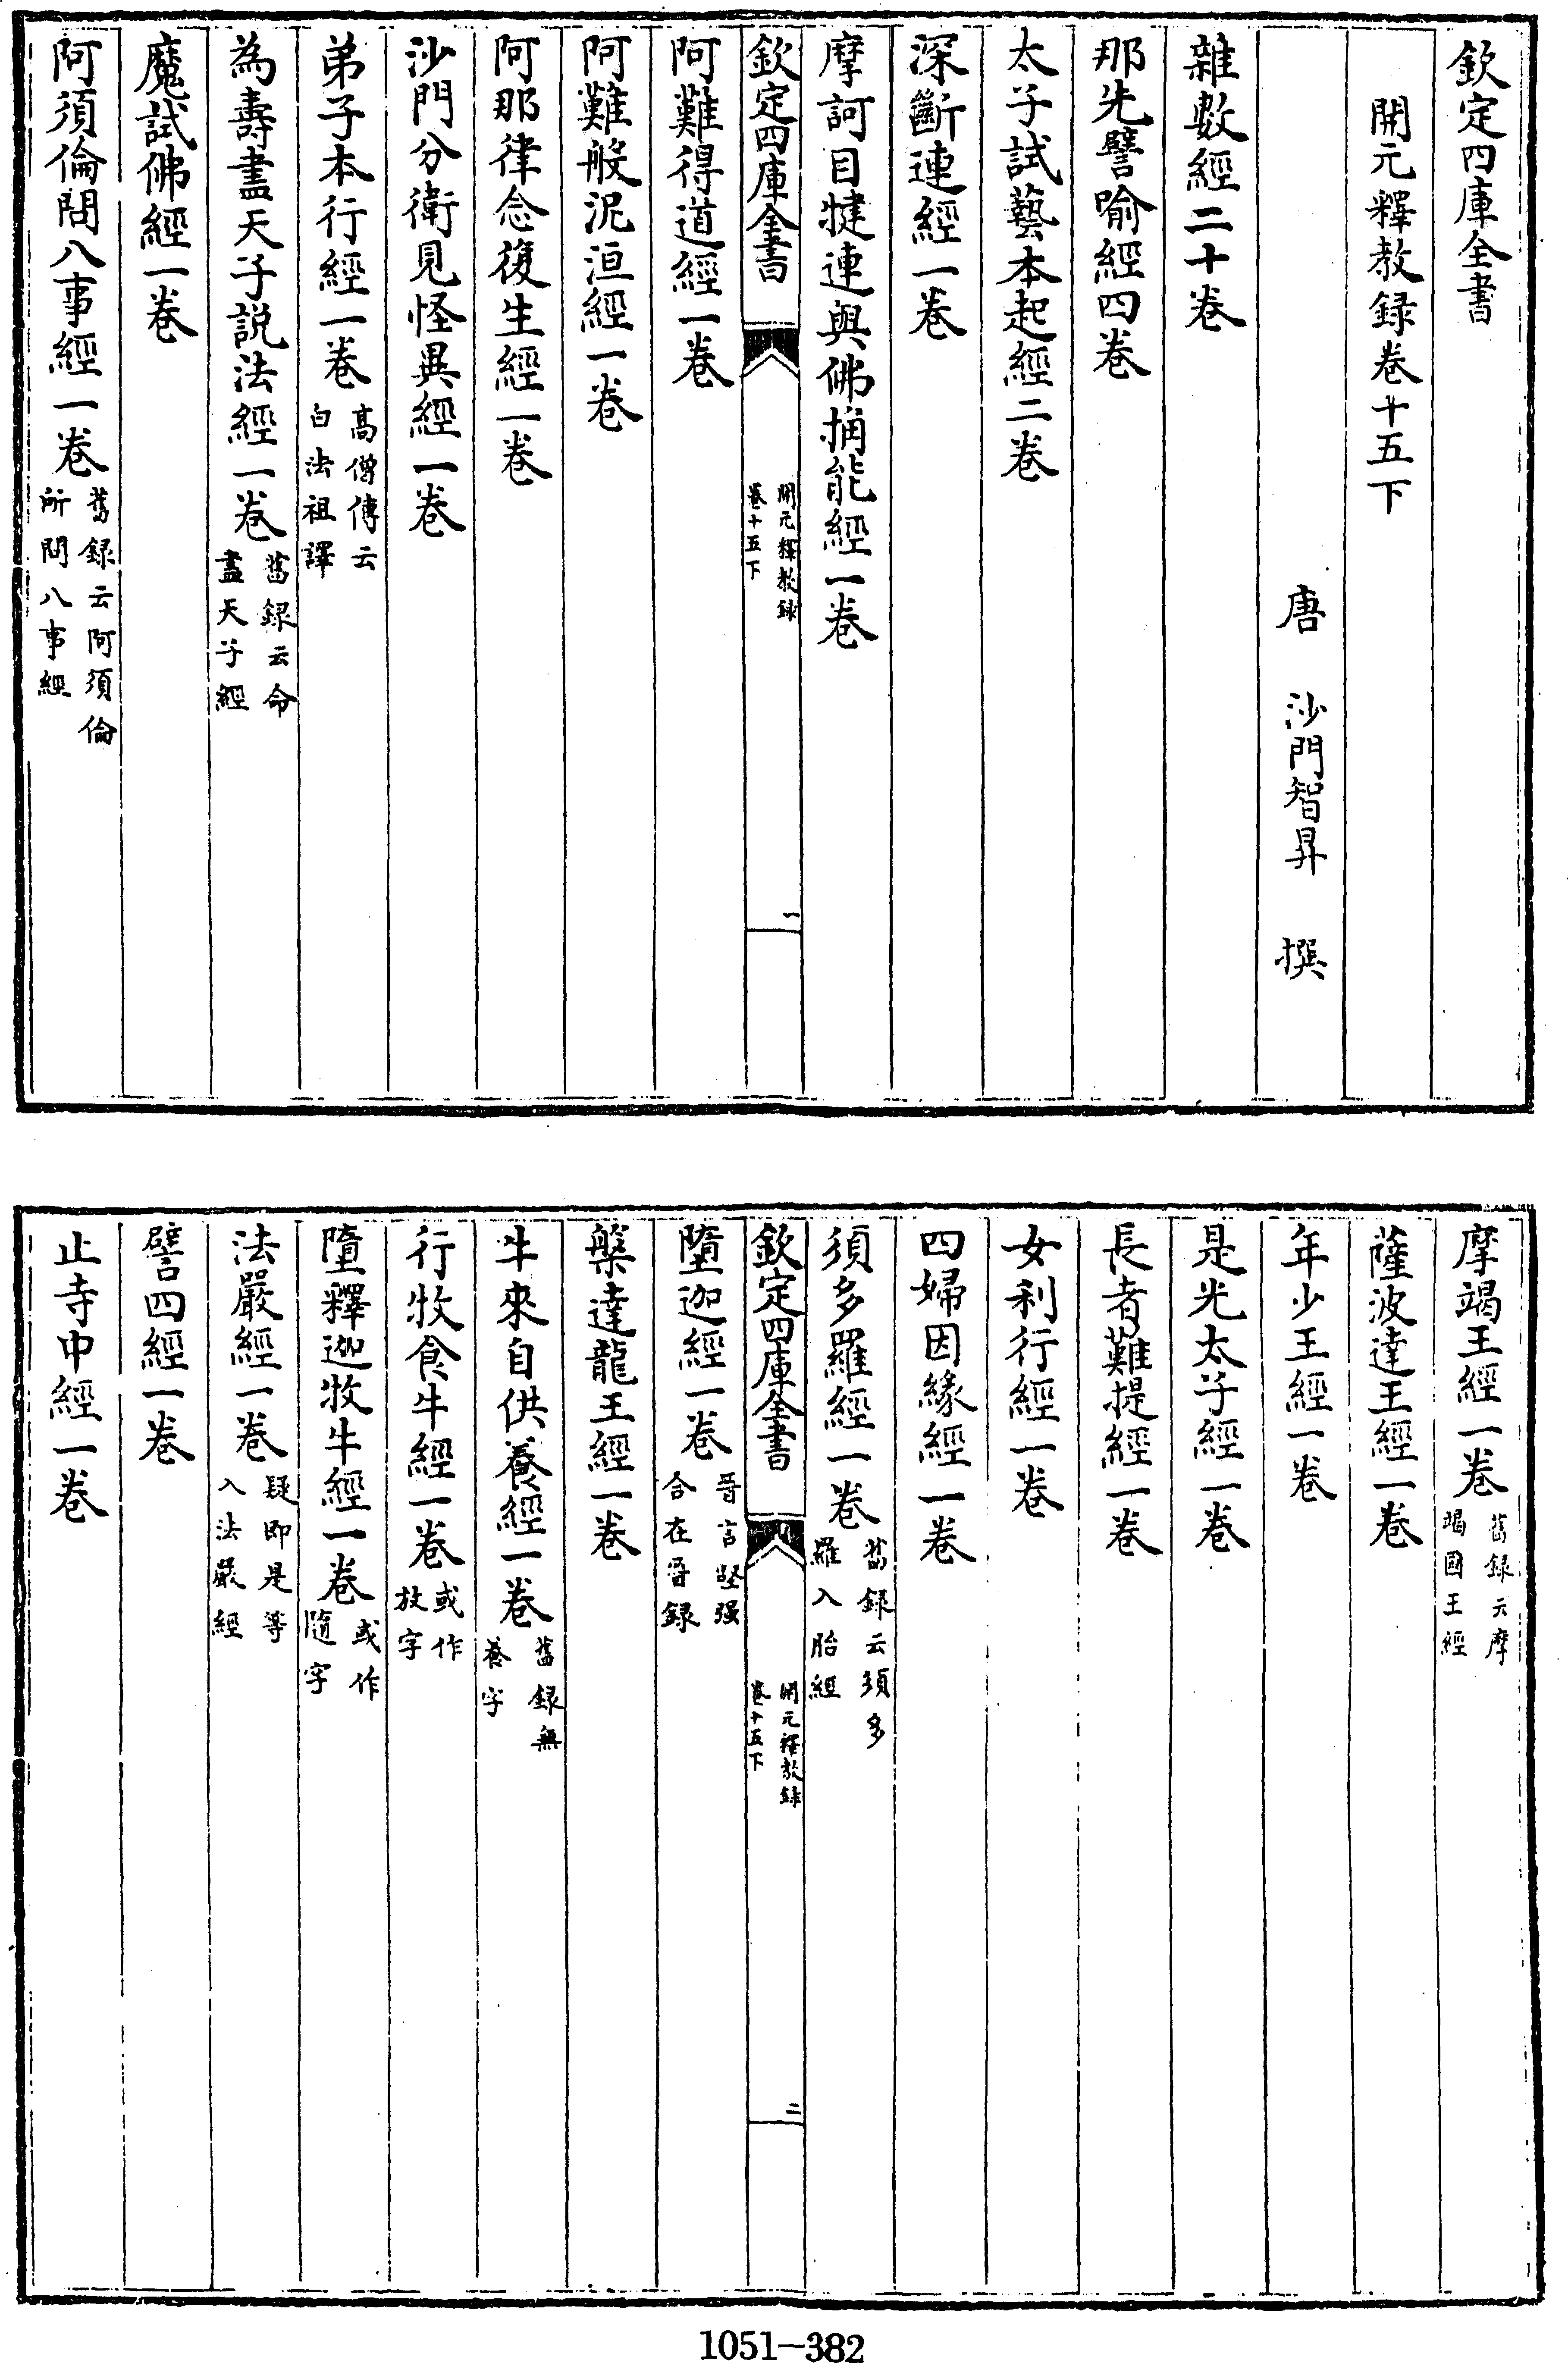 欽定四庫全書
開元釋教録卷十五下
唐 沙門智昇 撰
雜數經二十卷
那先譬喻經四卷
太子試藝本起經二卷
深斷連經一卷
摩訶目犍連與佛捔能經一卷
欽定四庫全書
開元釋教録
卷十五下
一
阿難得道經一卷
阿難般泥洹經一卷
阿那律念復生經一卷
沙門分衛見怪異經一卷
弟子本行經一卷高僧傳云
白法祖譯
為壽盡天子説法經一卷舊録云命
盡天子經
魔試佛經一卷
阿須倫問八事經一卷舊録云阿須倫
所問八事經
摩竭王經一卷舊録云摩
竭國王經
薩波達王經一卷
年少王經一卷
是光太子經一卷
長者難提經一卷
女利行經一卷
四婦因緣經一卷
須多羅經一卷舊録云須多
羅入胎經
欽定四庫全書
開元釋教録
卷十五下
二
墮迦經一卷晉言堅强
合在晉録
槃達龍王經一卷
牛來自供養經一卷舊録無
養字
行牧食牛經一卷或作
放字
墮釋迦牧牛經一卷或作
隨字
法嚴經一卷疑即是等
入法嚴經
譬四經一卷
止寺中經一卷
1051-382